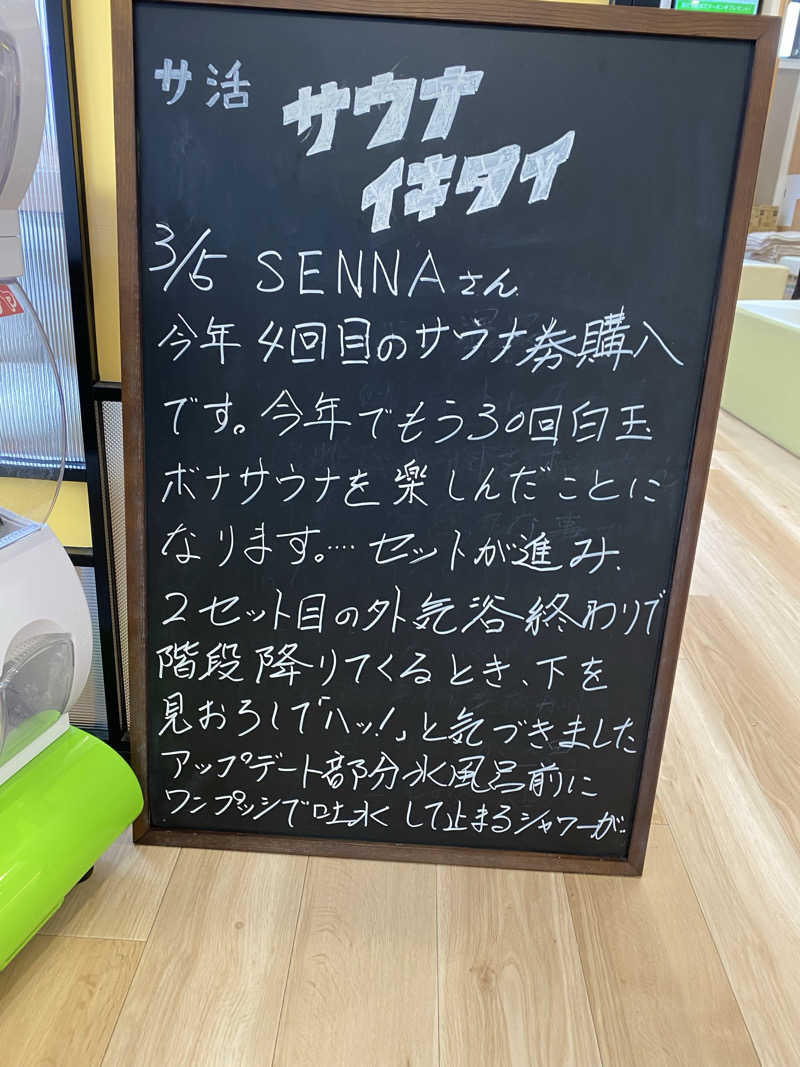 サ活 サウナ
イキタイ
3/5 SENNAさん
今年4回目のサウナ券購入
です。今年でもう30回白玉
ボナサウナを楽しんだことに
なります。…. セットが進み、
2セット目の外気浴終わりで
階段降りてくるとき、下を
見おろして「ハッ!」と気づきました
アップデート部分水風呂前に
ワンプッシで吐水して止まるシャワーが